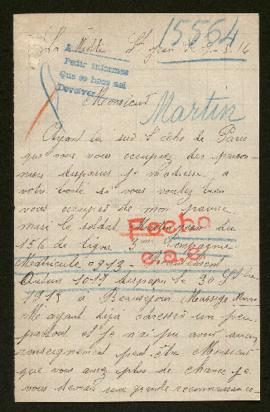 15564
La Motte St Jean le 9-3-16
A
Pedir informes
Que se hace así
Devolver
8
Monsieur
Martin
Ayant lu sur l'écho de Paris
que vous vous occupez des prison-
niers disparus je m'adresse à
votre bonté si vous voulez bien
vous occuper de mon pauvre
mari le soldat
156 de ligne
Fecho
Matricule 0913
Autun 1017 disparu le 30
1915 à Beauséjour Massiges Marne
M'ayant déjà adressé un peu
partout et je n'ai pu avoir aucun
renseignement peut-être Monsieur
que vous aurez plus de chance je
vous devrai une grande reconnaissance